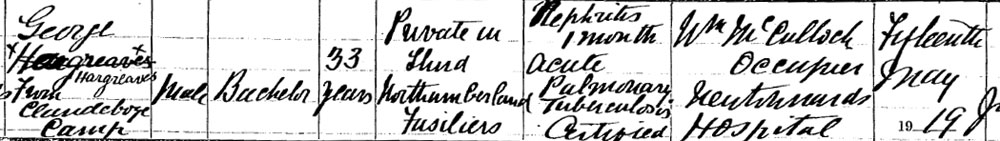 George
Hargreaves
Hargreaves
From
Clandeboye
Camp
Male
Bachelor
33
years
Private in
Third
Northumberland
Fusiliers
Nephritis
1 month
acute
Pulmonary
Tuberculosis
Certified
Wm McCulloch
Occupier
Newtownards
Hospital
Fifteenth
May
1919